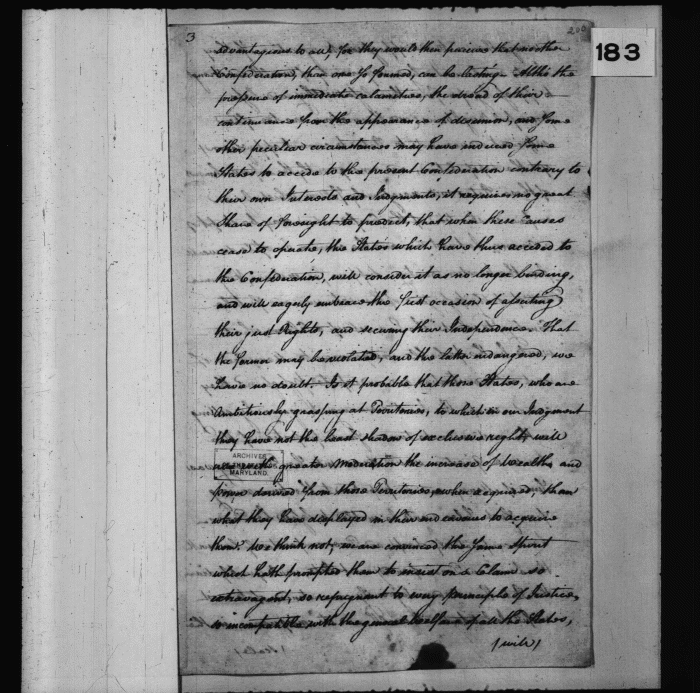 3
200
183
advantagious to all, for they would then perceive that no other
Confederation, than one so formed, can be lasting. Altho the
pressure of immediate calamities, the dread of their
continuance from the appearance of disunion, and some
other peculiar circumstances may have induced some
States to accede to the present Confederation contrary to
their own Interests and Judgments, it requires no great
Share of foresight to predict, that when these Causes
cease to operate, the States which have thus acceded to
the Confederation, will consider it as no longer binding,
and will eagerly embrace the first occasion of asserting
their just Rights, and securing their Independence. That
the former may be violated, and the latter endangered, we
have no doubt. Is it probable that those States, who are
Ambitiously grasping at Territories, to which in our Judgment
they have not the least shadow of exclusive right, will
use with greater Moderation the increase of Wealth and
power derived from those Territories, when acquired, than
what they have displayed in their endeavours to acquire
them? We think not; we are convinced the same Spirit
which hath prompted them to insist on a Claim so
extravagent, so repugnant to every principle of Justice,
so incompatible with the general Welfare of all the States,
(will)
ARCHIVES
MARYLAND.